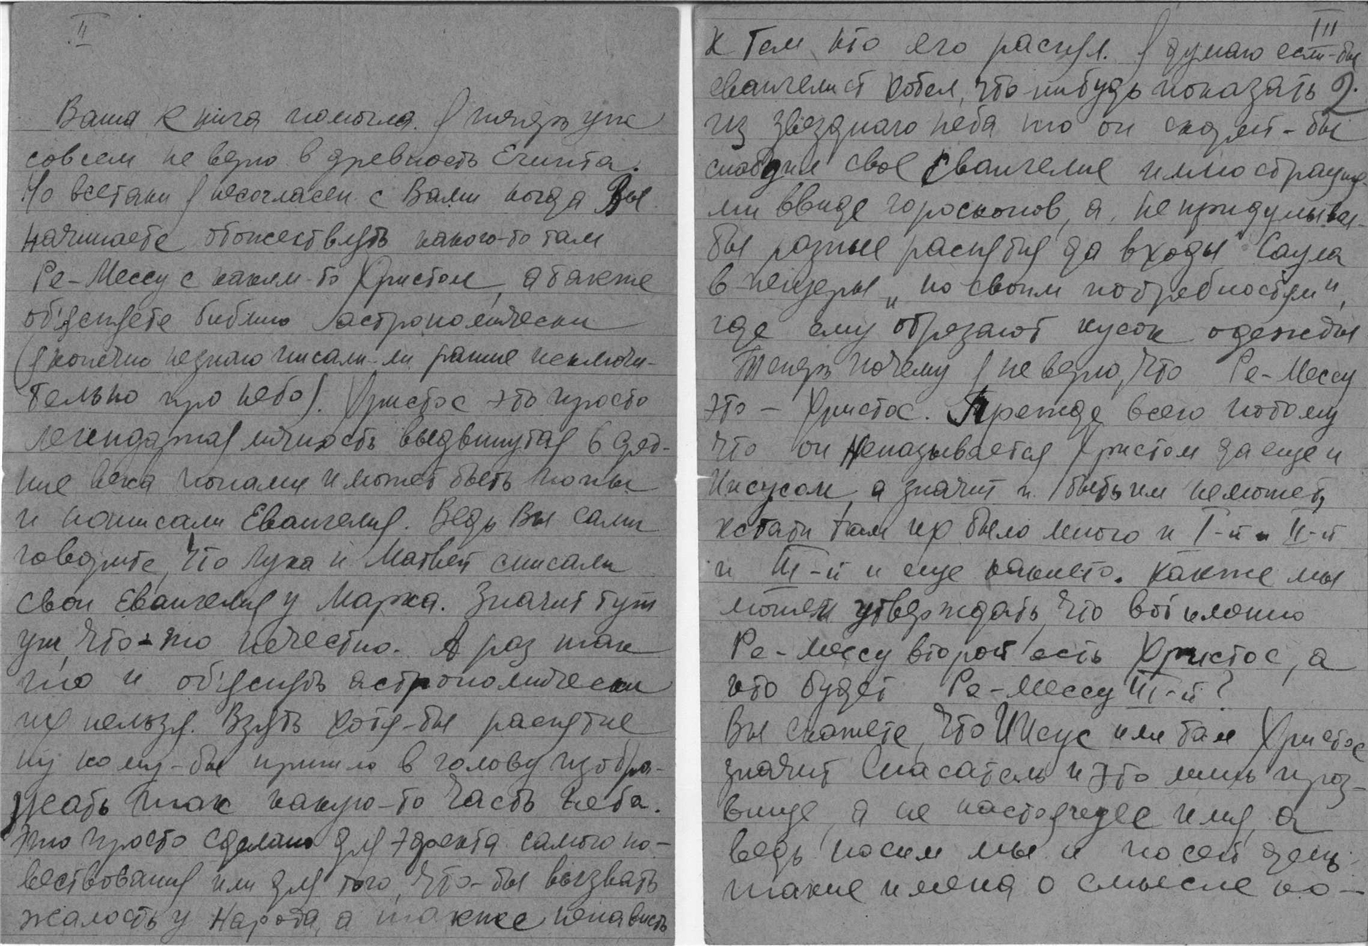 II
Ваша книга помогла. Я теперь уж
совсем не верю в древность Египта.
Но всетаки я несогласен с Вами когда Вы
начинаете отожествлять какого-то там
Ре-Мессу с каким-то Христом, а также
об'ясняете библию астрономически
(я конечно незнаю писали-ли раньше исключи-
тельно про небо). Христос это просто
легендарная личность выдвинутая в сред-
ние века попами и может быть попы
и написали Евангелия. Ведь Вы сами
говорите, что Лука и Матвей списали
свои Евангелия у Марка. Значит тут
уж что-то нечестно. А раз так
то и об'яснять астрономически
их нельзя. Взять хотя-бы распятие
ну кому-бы пришло в голову изобра-
жать так какую-то часть неба.
Это просто сделано для эффекта самого по-
вествования или для того, что-бы вызвать
жалость у народа, а также ненависть
III
к тем кто его распял. Я думаю если-бы
евангелист хотел, что-нибудь показать
из звездного неба то он скорей-бы
снабдил свое Евангелие иллюстрация
ми ввиде гороскопов, а, не придумывал-
бы разные распятия да входы Саула
в пещеры „по своим потребностям",
где ему обрезают кусок одежды
Теперь почему я не верю, что Ре-Мессу
это - Христос. Прежде всего потому
что он неназывается Христом да еще и
Иисусом, а значит и быть им неможет,
кстати там их было много и I-й и II-й
и III-й и еще какието. Как же мы
можем утверждать, что вот именно
Ре-Мессу второй есть Христос, а
кто будет Ре-Мессу III-й?
Вы скажете, что Иисус или там Христос
значит Спасатель и это лишь проз-
вище, а не настоящее имя, а
ведь носим мы и посей день
такие имена о смысле ко-